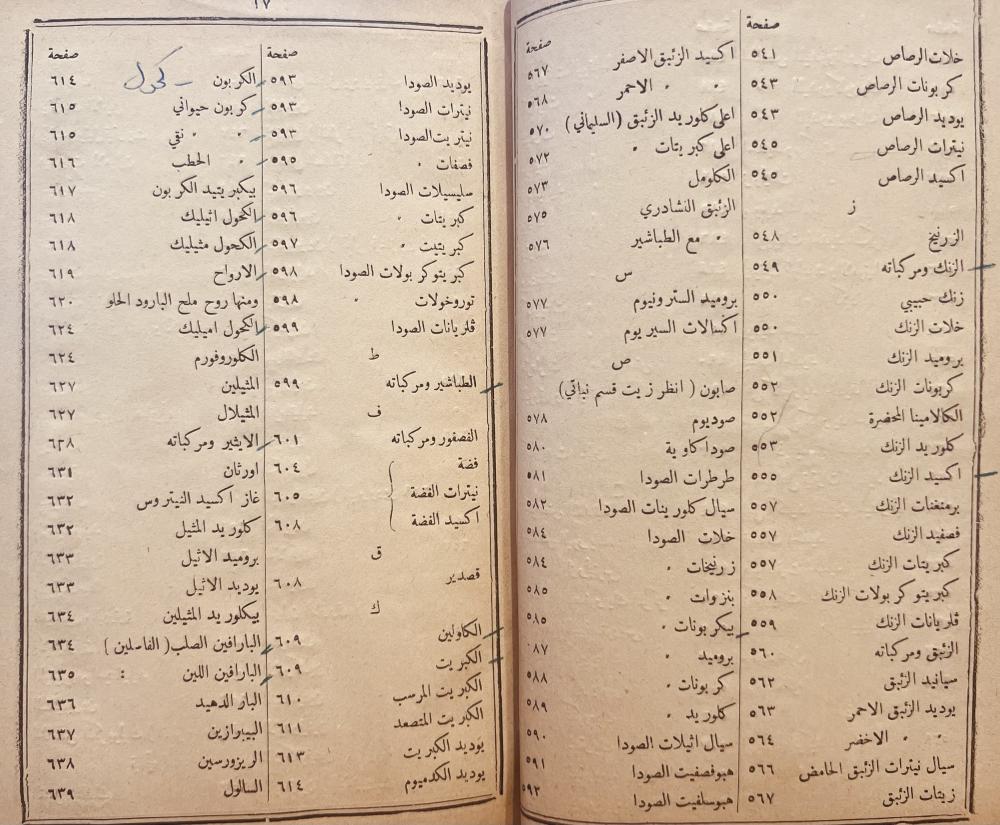 صفحة
خلات الرصاص ٥٤١
كربونات الرصاص ٥٤٣
يوديد الرصاص ٥٤٣
نيترات الرصاص ٥٤٥
اكسيد الرصاص ٥٤٥
ز
الزرنيخ ٥٤٨
الزنك ومركباته ٥٤٩
زنك حبيبي ٥٥٠
خلات الزنك ٥٥٠
بروميد الزنك ٥٥١
كربونات الزنك ٥٥٢
الكالامينا المحضرة ٥٥٢
كلوريد الزنك ٥٥٣
اكسيد الزنك ٥٥٥
برمنغنات الزنك ٥٥٧
فصفيد الزنك ٥٥٧
كبريتات الزنك ٥٥٧
كبريتو كربولات الزنك ٥٥٨
ڤلريانات الزنك ٥٥٩
الزئبق ومركباته ٥٦٠
سيانيد الزئبق ٥٦٢
يوديد الزئبق الاحمر ٥٦٣
" " الاخضر ٥٦٤
سيال نيترات الزئبق الحامض ٥٦٦
زيتات الزئبق ٥٦٧
صفحة
اكسيد الزئبق الاصفر ٥٦٧
" " الاحمر ٥٦٨
اعلى كلوريد الزئبق (السليماني) ٥٧٠
اعلى كبريتات " ٥٧٢
الكلومل ٥٧٣
الزئبق النشادري ٥٧٥
" مع الطباشير ٥٧٦
س
بروميد السترونيوم ٥٧٧
اكسالات السيريوم ٥٧٧
ص
صابون ( انظر زيت قسم نباتي)
صوديوم ٥٧٨
صودا كاوية ٥٨٠
طرطرات الصودا ٥٨١
سيال كلورينات الصودا ٥٨٢
خلات الصودا ٥٨٤
زرنيخات " ٥٨٤
بنزوات " ٥٨٥
بيكربونات " ٥٨٥
بروميد " ٥٨٧
كربونات " ٥٨٨
كلوريد " ٥٨٩
سيال اثيلات الصودا ٥٩٠
هبوفصفيت الصودا ٥٩١
هبوسلفيت الصودا ٥٩٢
١٧
صفحة
يوديد الصودا ٥٩٣
نيترات الصودا ٥٩٣
نيتريت الصودا ٥٩٣
فصفات " ٥٩٥
سليسيلات الصودا ٥٩٦
كبريتات " ٥٩٦
كبريتيت " ٥٩٧
كبريتوكربولات الصودا ٥٩٨
توروخولات " ٥٩٨
ڤلريانات الصودا ٥٩٩
ط
الطباشير ومركباته ٥٩٩
ف
الفصفور ومركباته ٦٠١
فضة ٦٠٤
نيترات الفضة ٦٠٥
اكسيد الفضة ٦٠٨
ق
قصدير ٦٠٨
ك
الكاولين ٦٠٩
الكبريت ٦٠٩
الكبريت المرسب ٦١٠
الكبريت المتصعد ٦١١
يوديد الكبريت ٦١٣
يوديد الكدميوم ٦١٤
صفحة
الكربون – كحول ٦١٤
كربون حيواني ٦١٥
" " نقي ٦١٥
" الحطب ٦١٦
بيكبريتيد الكربون ٦١٧
الكحول اثيليك ٦١٨
الكحول مثيليك ٦١٨
الارواح ٦١٩
ومنها روح ملح البارود الحلو ٦٢٠
الكحول اميليك ٦٢٤
الكلوروفورم ٦٢٤
المثيلين ٦٢٧
المثيلال ٦٢٧
الايثير ومركباته ٦٢٨
اورثان ٦٣١
غاز اكسيد النيتروس ٦٣٢
كلوريد المثيل ٦٣٢
بروميد الاثيل ٦٣٣
يوديد الاثيل ٦٣٣
بيكلوريد المثيلين ٦٣٤
البارافين الصلب ( الفاسلين ) ٦٣٤
البارافين اللين : ٦٣٥
البار الدهيد ٦٣٦
البيبرازين ٦٣٧
الريزورسين ٦٣٨
السالول ٦٣٩